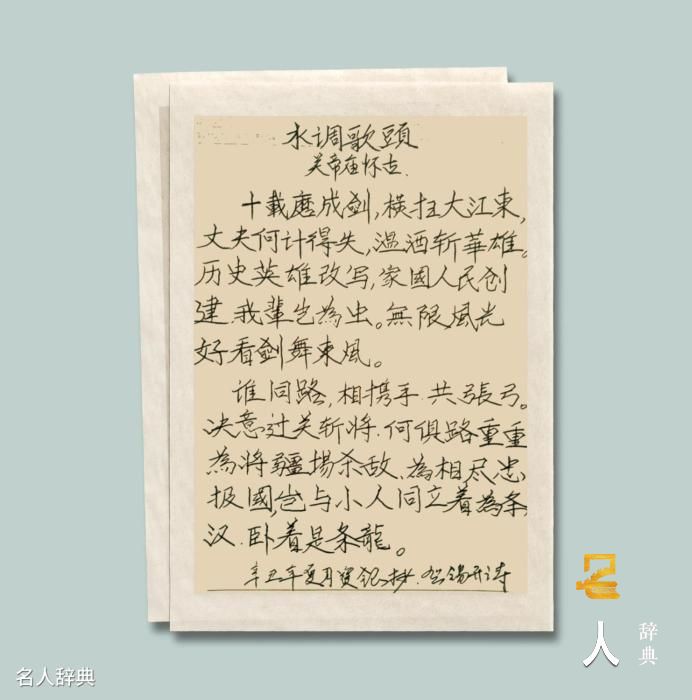 水调歌頭
关帝庙怀古.
十载磨成剑,横扫大江東,
丈夫何计得失,温酒斩華雄。
历史英雄改写,家國人民创
建.我輩岂為虫。無限風光
好看劍舞東風。
谁同路,相携手.共張弓。
决意过关斩将.何俱路重重
為將疆場杀敌、為相尽忠
报國,岂与小人同立着為条
汉.卧着是条龍。
辛丑年夏月贺锡抄.
名
人
辞典
名人辞典